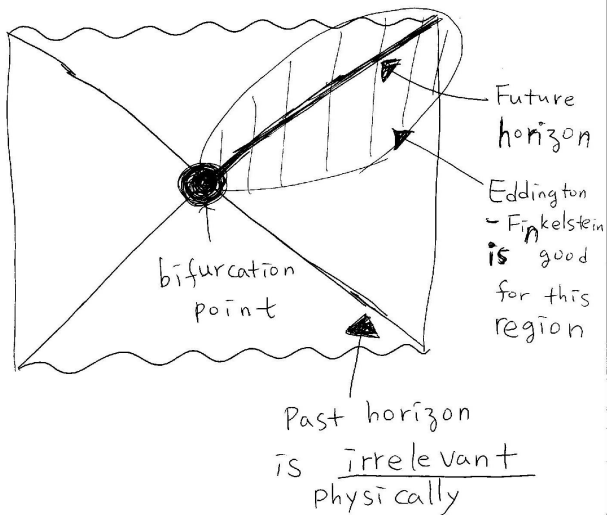 Future
horizon
Eddington
- Finkelstein
is good
for this
region
bifurcation
point
Past horizon
is irrelevant
physically